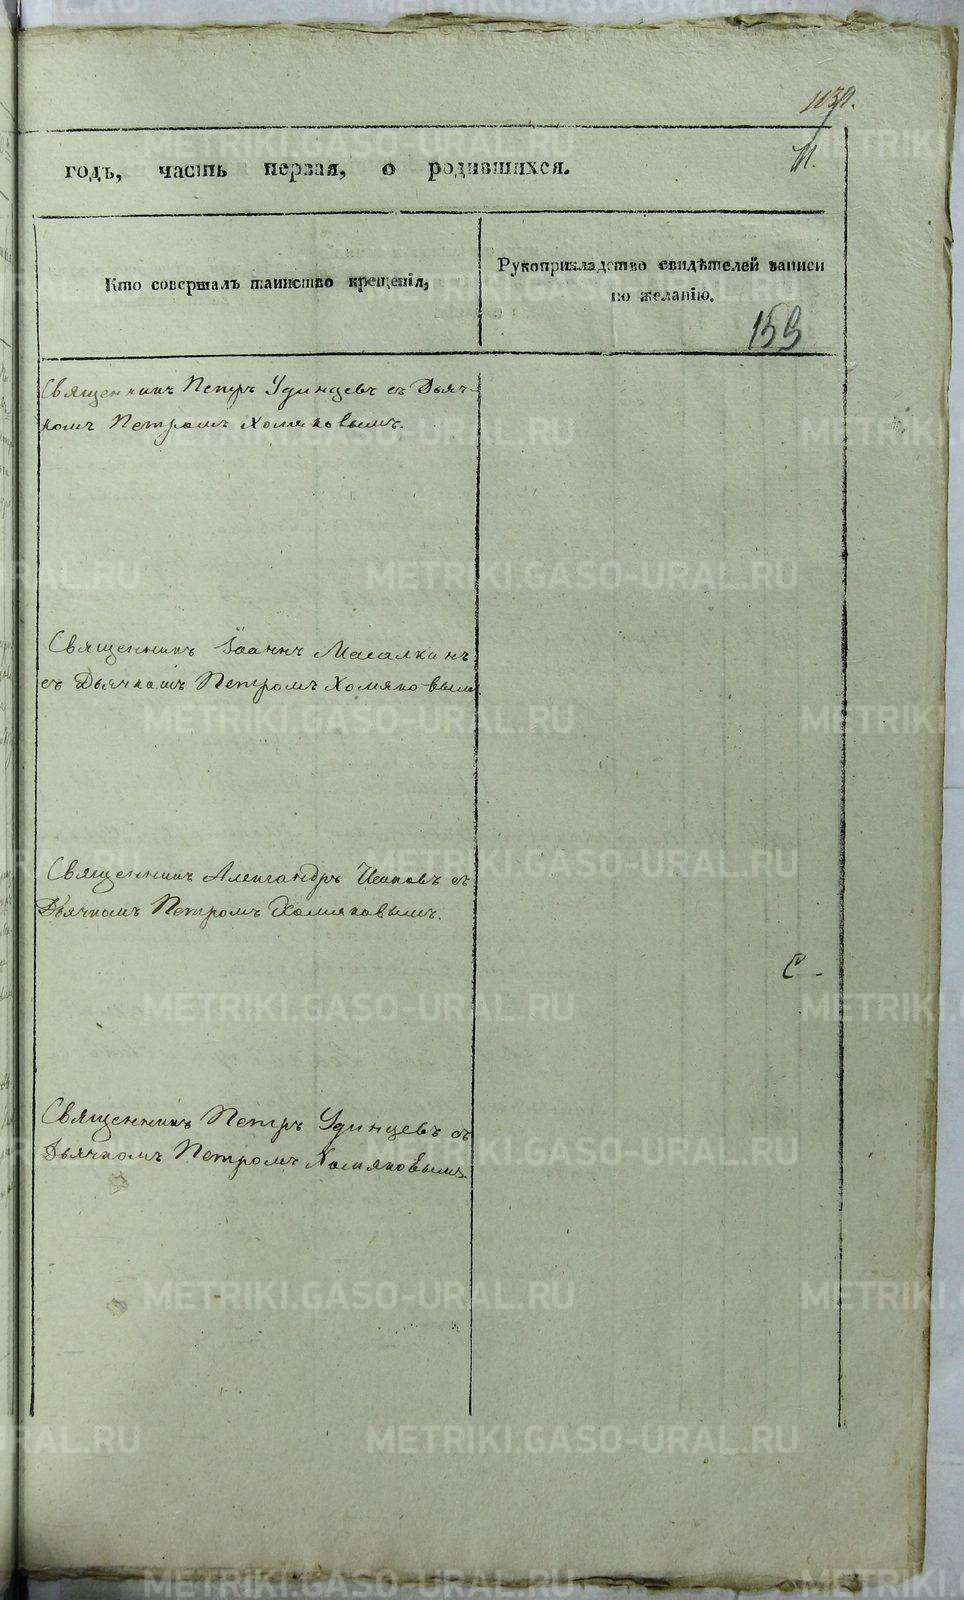 1139.
11.
годъ, часть первая, о родившихся.
Кто совершалъ таинство крещенія,
Рукоприкладство свидѣтелей записи
по желанію.
159
Священникъ Петръ Удинцевъ съ Дьяч-
комъ Петромъ Хомяковымъ.
Священникъ Іоаннъ Масалкинъ
съ Дьячкомъ Петромъ Хомяковымъ
Священникъ Александръ съ
Дьячкомъ Петромъ Хомяковымъ.
С.
Священникъ Петръ Удинцевъ съ
Дьячкомъ Петромъ Хомяковымъ.
METRIKI.GASO-URAL.RU